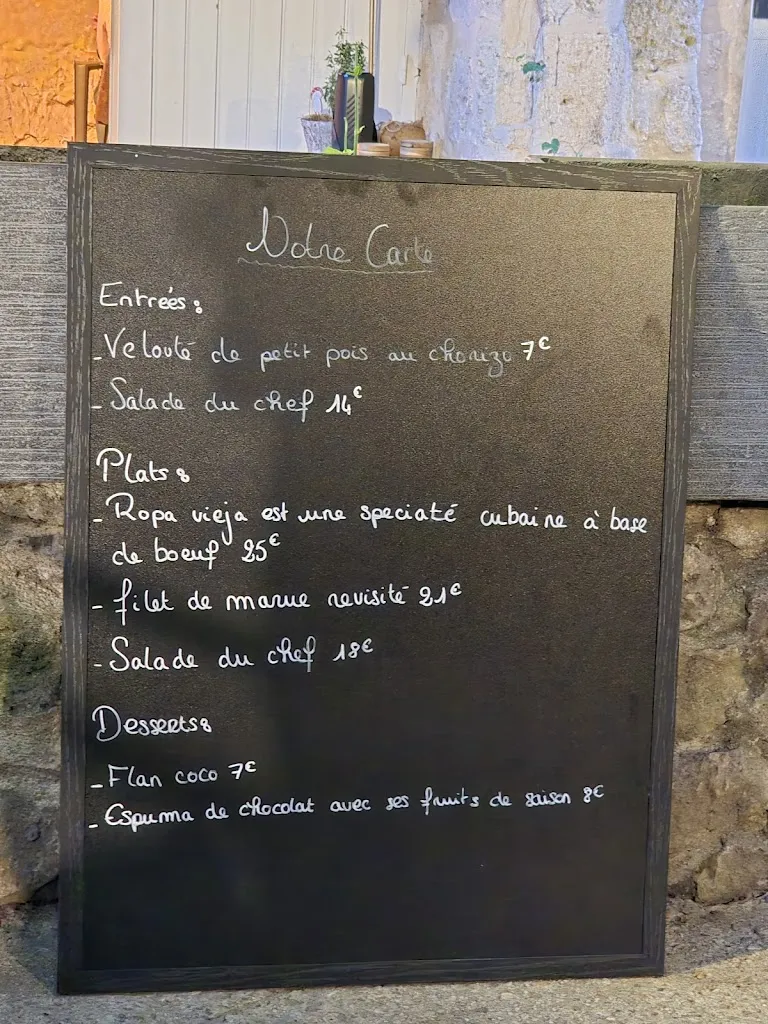 Notre Carte
Entrées :
- Velouté de petit pois au chorizo 7€
- Salade du chef 14€
Plats :
- Ropa vieja est une speciaté cubaine à base
de boeuf 25€
- filet de morue revisité 21€
- Salade du chef 18€
Desserts :
- Flan coco 7€
- Espuma de chocolat avec ses fruits de saison 8€